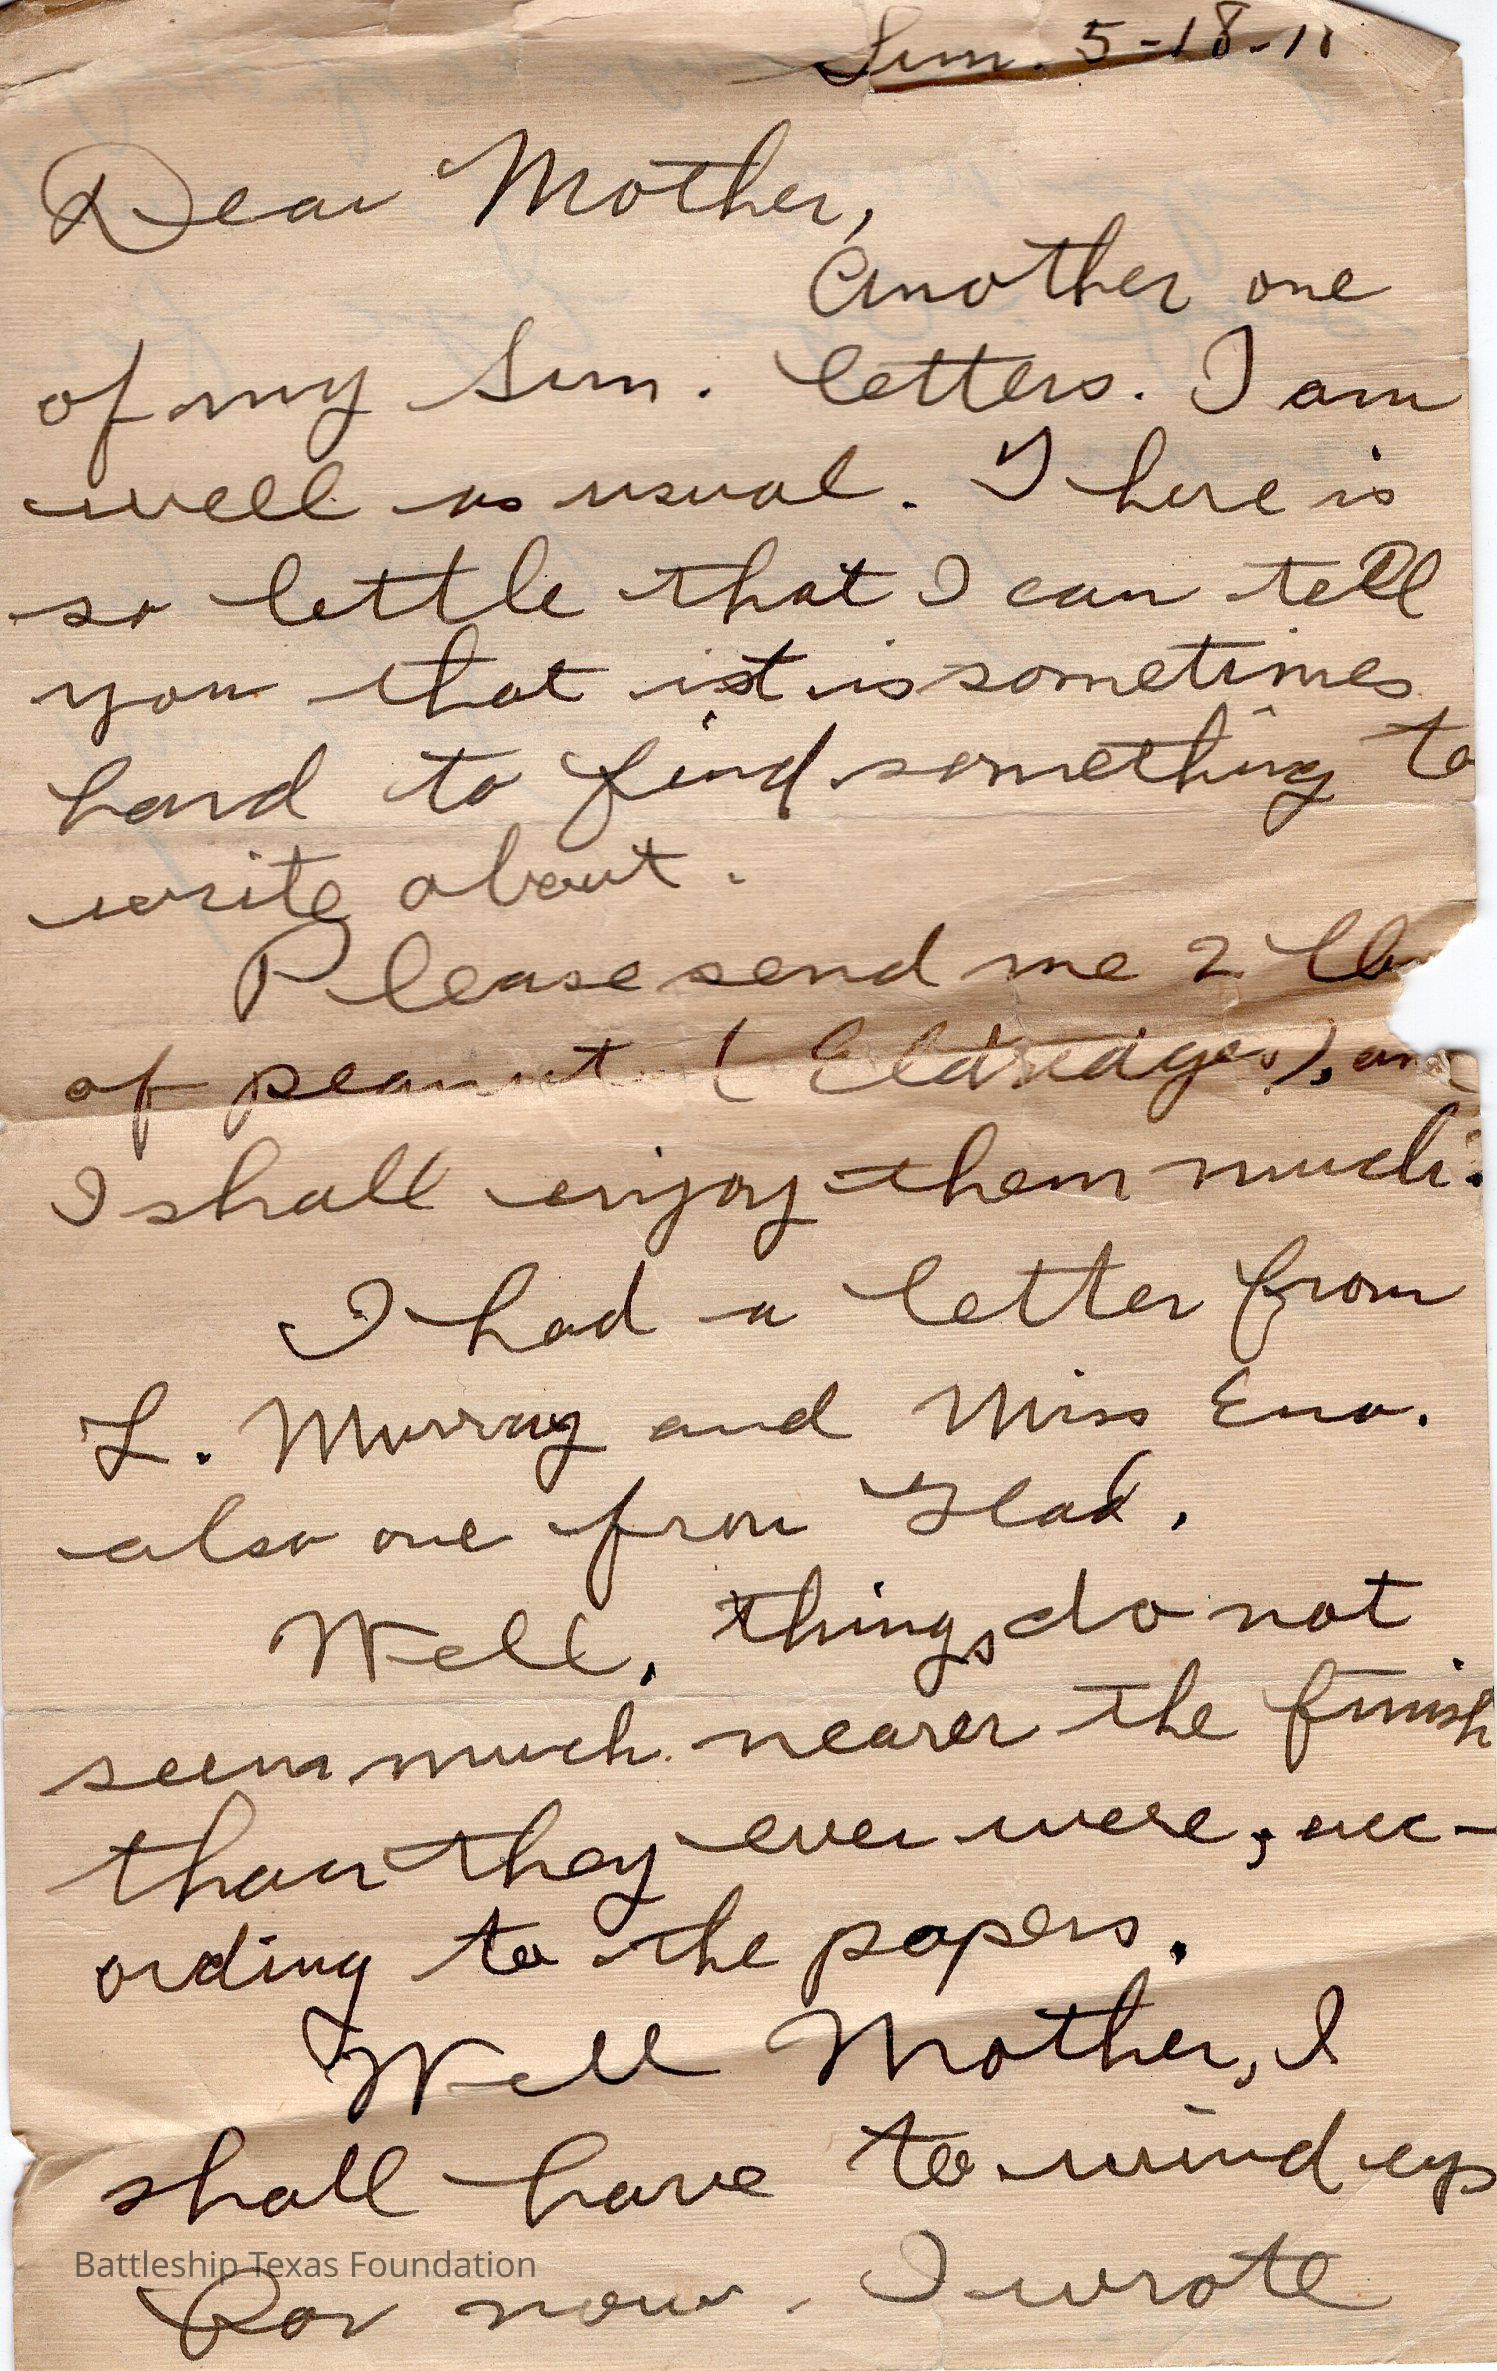 Sun. 5-18-18
Dear Mother,
Another one
of my Sun. letters. I am
well as usual. There is
so little that I can tell
you that ist is sometimes
hard to find something to
write about.
Please send me 2 lbs
of peanut (Eldredges), and
I shall enjoy them much.
I had a letter from
L. Murray and Miss Eno.
also one from Glad.
Well, things do not
seem much nearer the finish
than they ever were, acc-
ording to the papers.
Well Mother, I
shall have to wind up
Battleship Texas Foundation
for now. I wrote